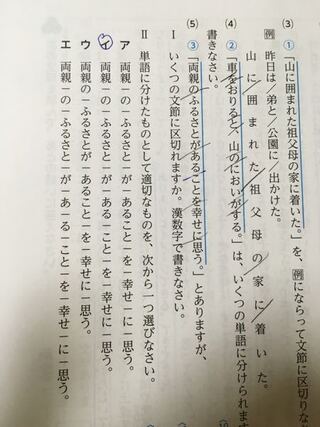 (3) ①「山に囲まれた祖父母の家に着いた。」を、例にならって文節に区切り
例 昨日は／弟と／公園に／出かけた。
山に囲まれた祖父母の家に着いた。
(4) ②「車をおりると、山のにおいがする。」は、いくつの単語に分けられます
書きなさい。
(5) ③「両親のふるさとがあることを幸せに思う。」とありますが、
Ⅰ いくつの文節に区切れますか。漢数字で書きなさい。
Ⅱ 単語に分けたものとして適切なものを、次から一つ選びなさい。
ア 両親―の―ふるさとが―あること―を―幸せに―思う。
イ 両親―の―ふるさと―が―ある―こと―を―幸せに―思う。
ウ 両親の―ふるさとが―あることを―幸せに―思う。
エ 両親―の―ふるさと―が―あ―る―こと―を―幸せ―に―思う。